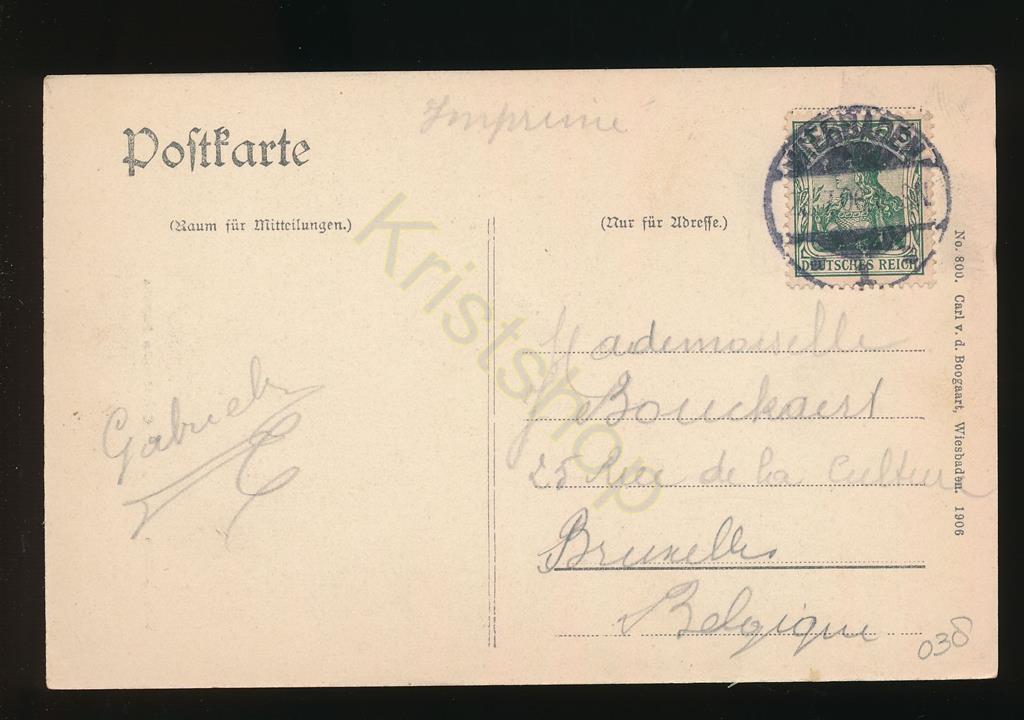 Imprimé
Postkarte
(Raum für Mitteilungen.)
(Nur für Adresse.)
WIESBADEN
DEUTSCHES REICH
1
Mademoiselle
J Bouckaert
25 Rue de la Culture
Bruxelles
Belgique
Gabriel
No. 800. Carl v. d. Boogaart, Wiesbaden. 1906
038
Kristshop